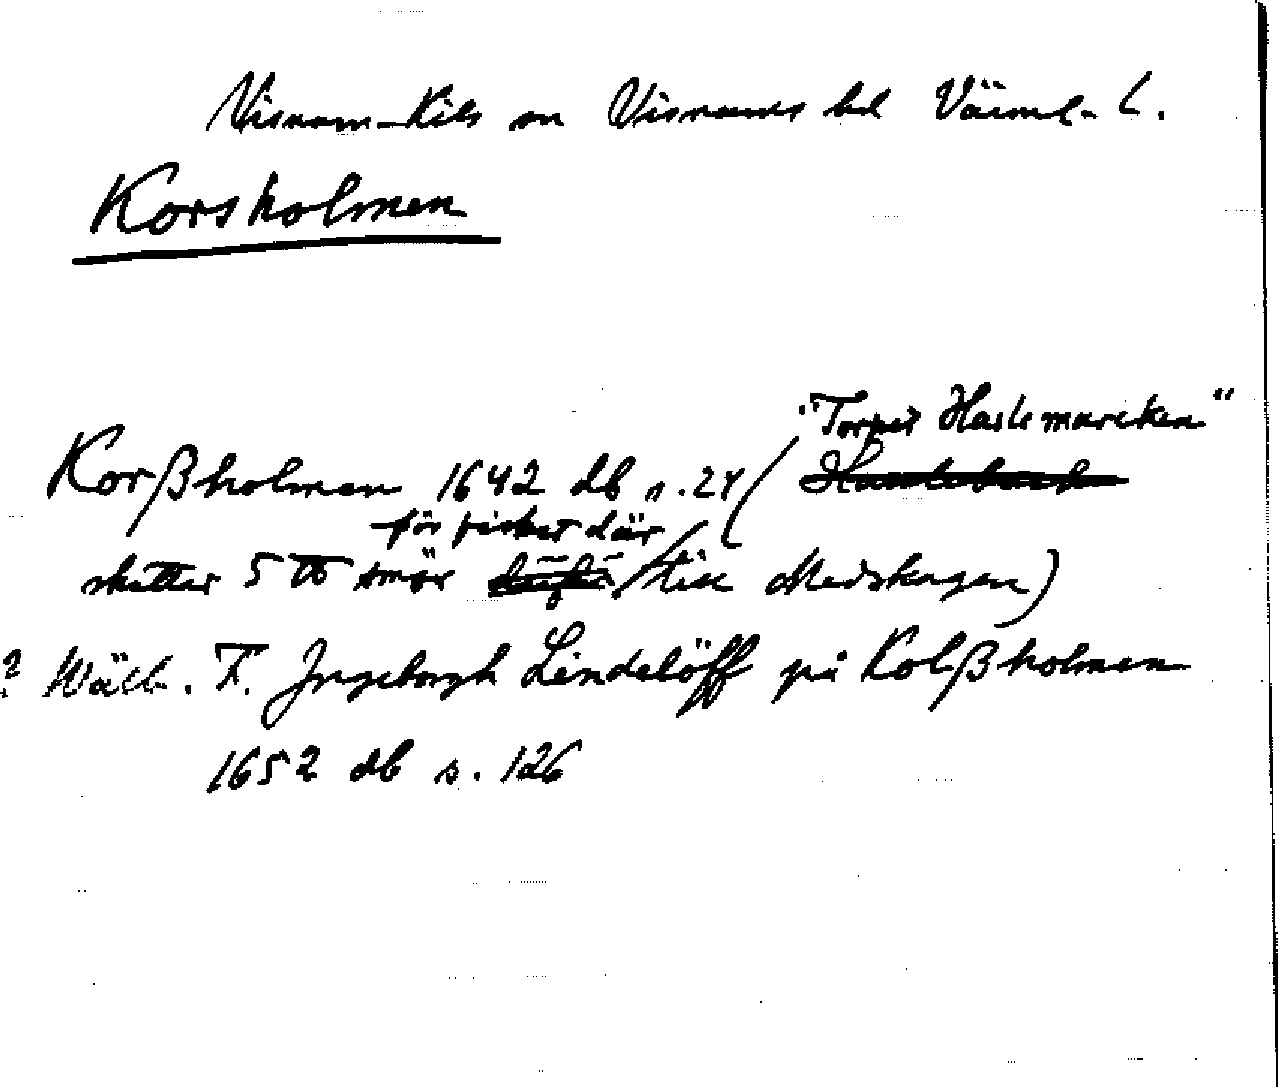 Visnum-Kils sn Visnums hd Värml. L.
Korsholmen
"Torpet Haslemarcken"
Korßholmen 1642 db s. 24 (
för fisket där
skatter 5 ℔ smör till Medskogen)
? Wälb. F. Jngeborgh Lindelöff på Kolßholmen
1652 db s. 126